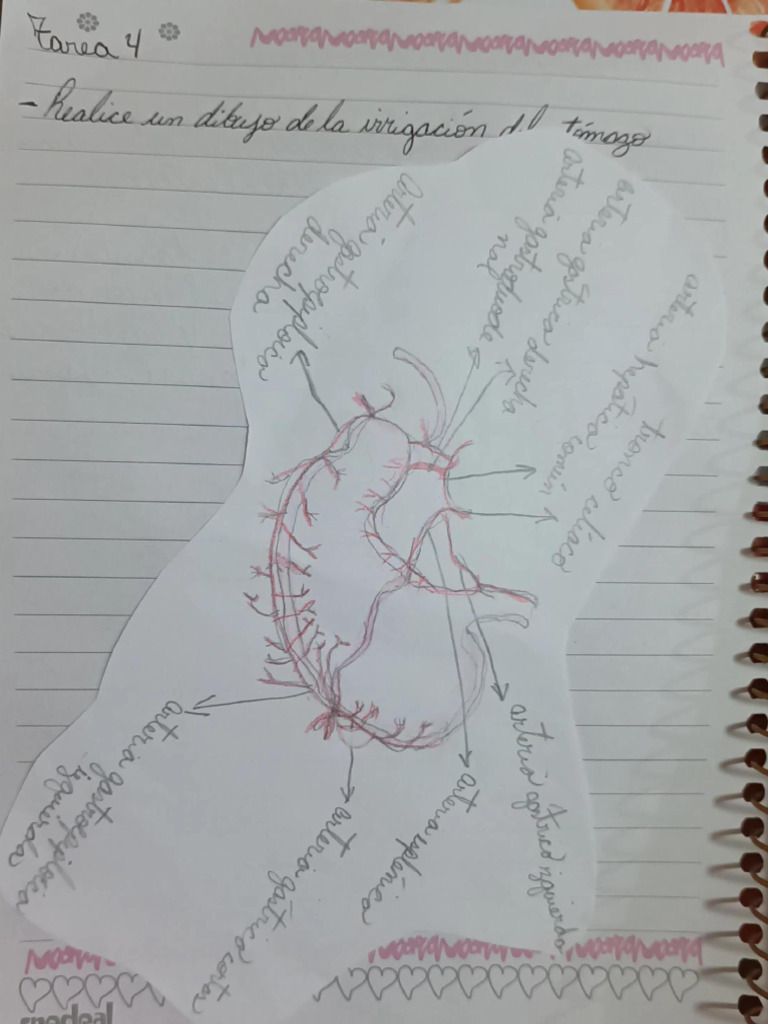 Tarea 4
- Realice un dibujo de la irrigación del tómago
arteria gastroepiploica
derecha
arteria gastroduode
nal
arteria gástrica derecha
arteria hepática común
tronco celiaco
arteria gástrica izquierda
arteria esplénica
arteria gástrica cortas
arteria gastroepiploica
izquierda